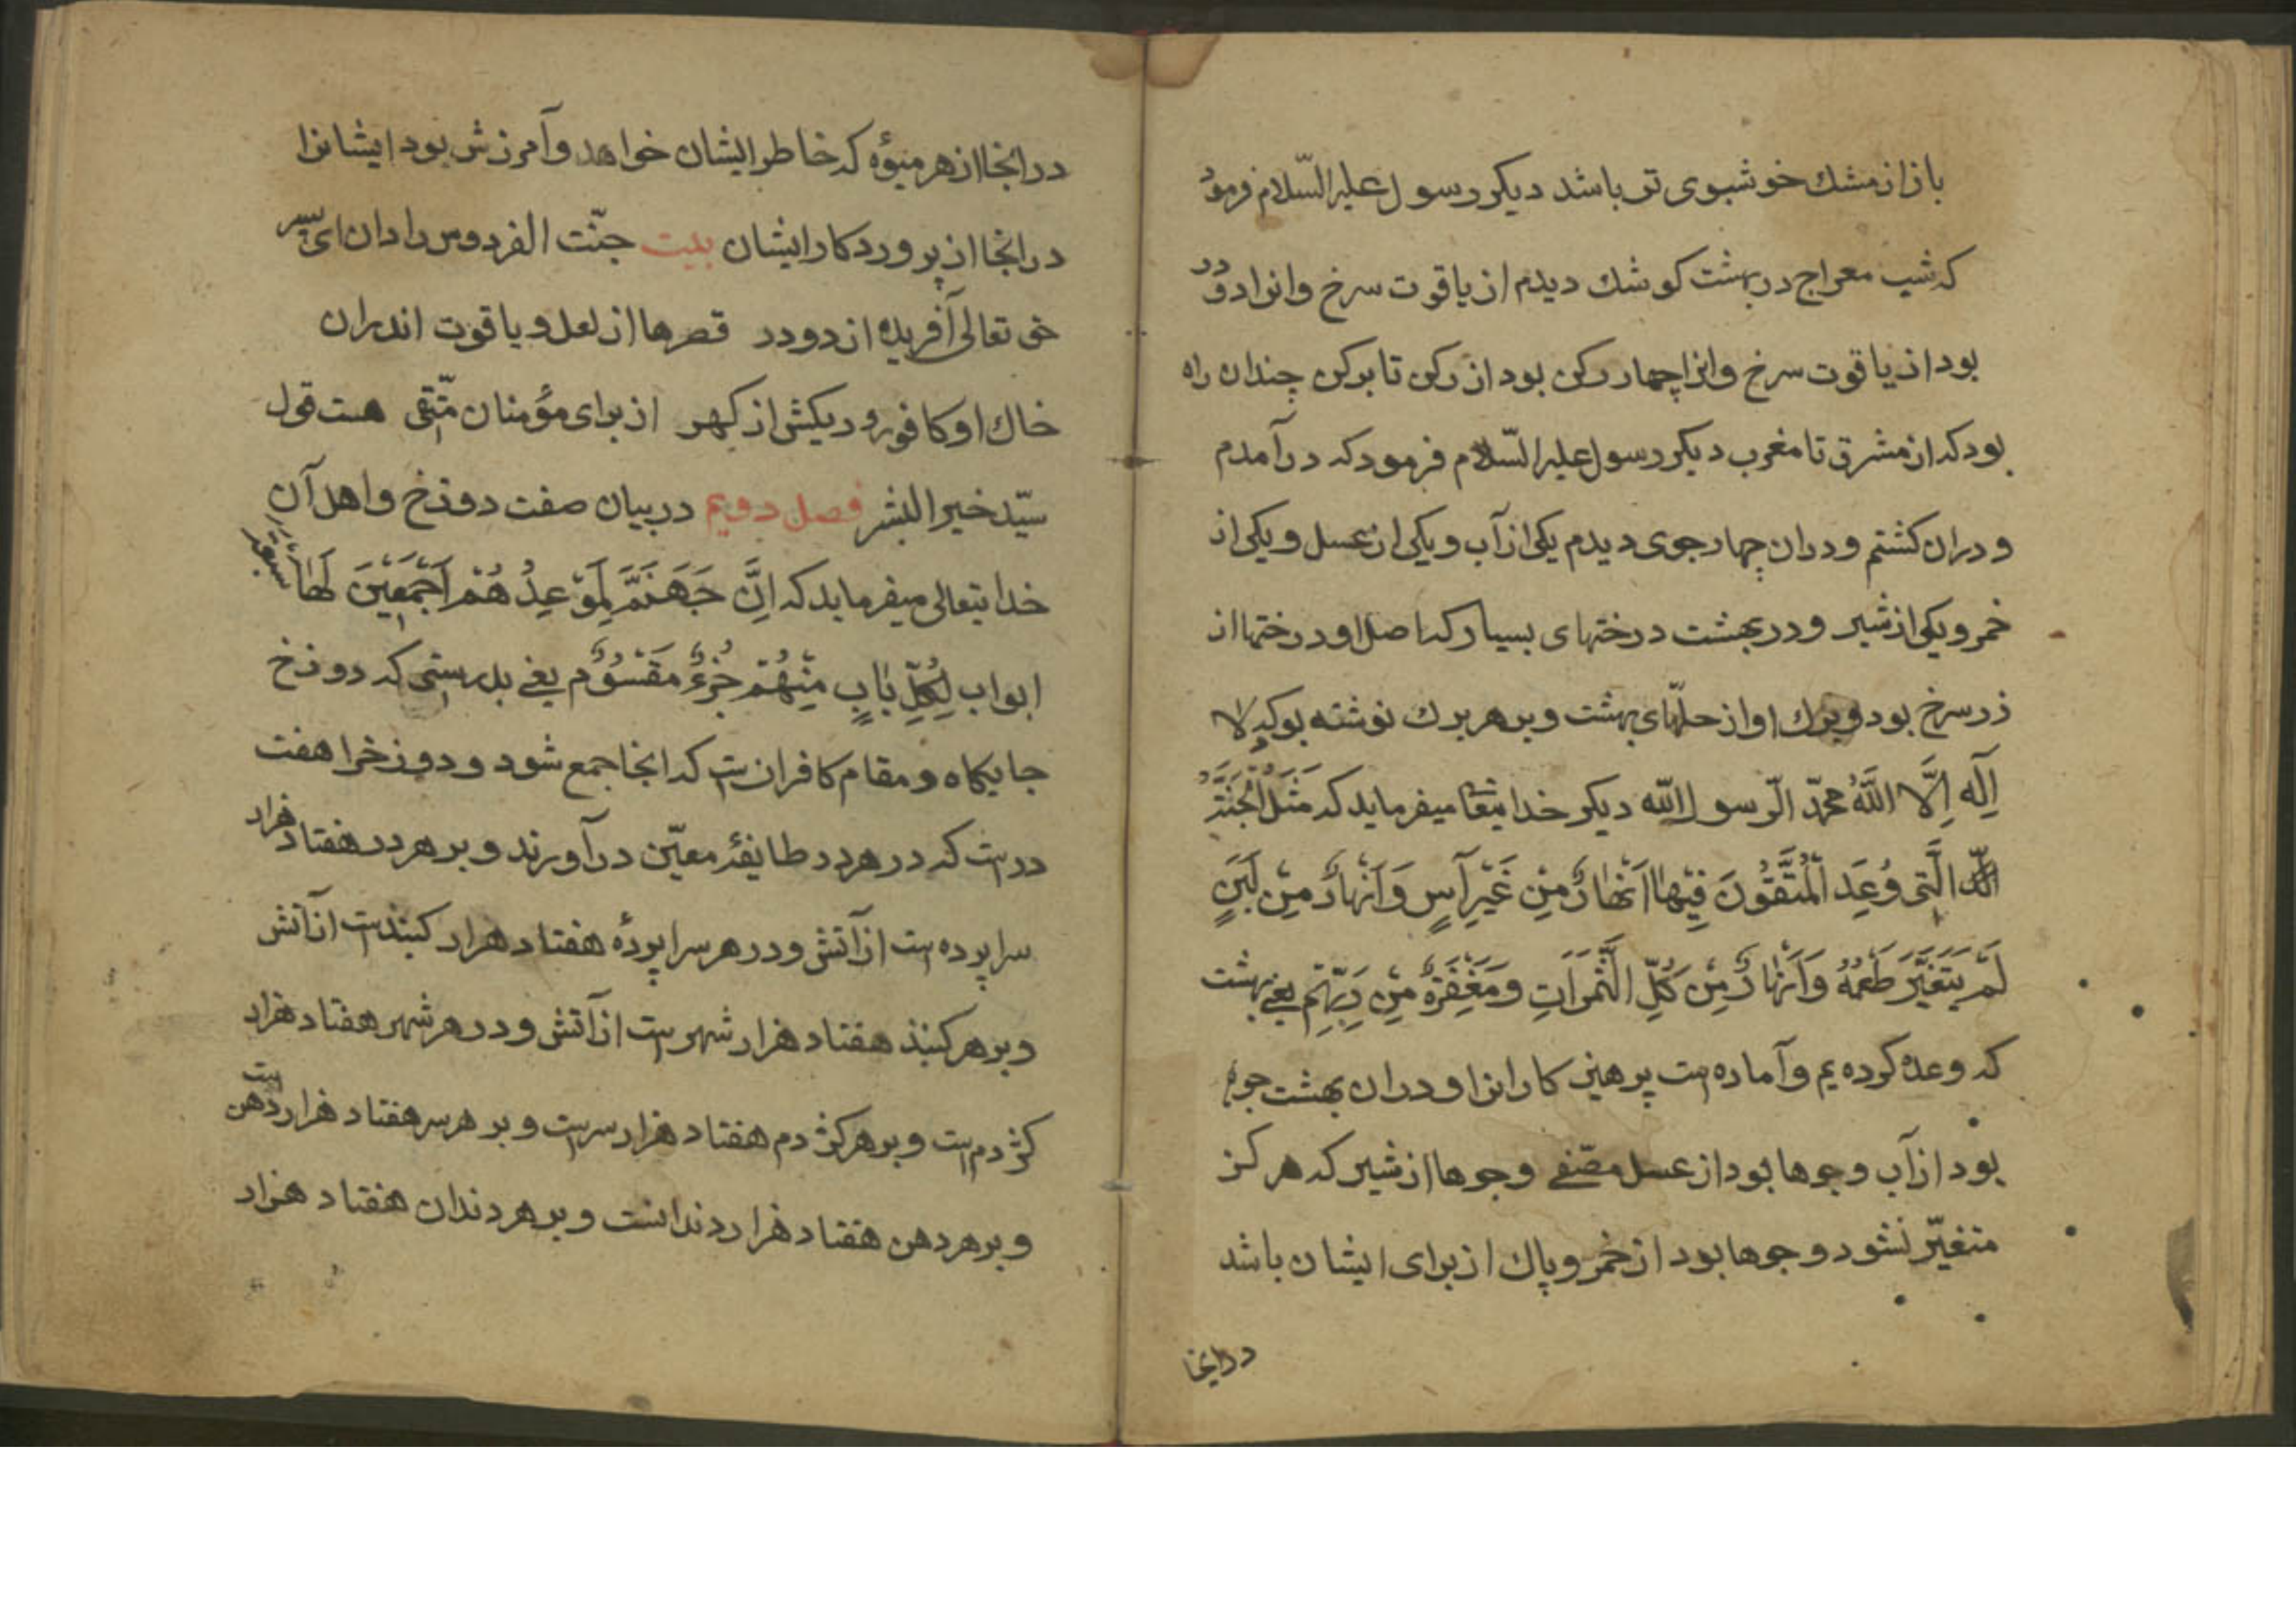 باز از مشك خوشبوی تر باشد دیكر رسول علیه السّلام فرمود
كه شب معراج در بهشت كوشك دیدم از یاقوت سرخ وانرا دو در
بود از یاقوت سرخ وانرا چهار ركن بود از ركن تا بركن چندان راه
بود كه از مشرق تا مغرب دیكر رسول علیه السّلام فرمود كه درآمدم
و دران كشتم و دران چهار جوی دیدم یكی از آب و یكی از عسل و یكی از
خمر و یكی از شیر و در بهشت درختهای بسیار كه اصل او درختها از
زر سرخ بود و برك او از حلّهای بهشت و بر هر برك نوشته بود كه لا
اِلَه اِلَّا اللَّهُ محمّد الرّسول اللّه دیكر خدایتعا میفرماید كه مَثَلُ الْجَنَّةِ
الَّتی وُعِدَ الْمُتَّقُونَ فِیْهَا اَنْهَارٌ مِنْ غَیْرِ آسٍ وَاَنْهَارٌ مِنْ لَبَنٍ
لَمْ یَتَغَیَّرْ طَعْمُهُ وَاَنْهَارٌ مِنْ كُلِّ الثَّمَرَاتِ وَمَغْفِرَةٌ مِنْ رَبِّهِمْ یعنی بهشت
كه وعده كرده یم و آماده است پرهیز كارانرا و دران بهشت جوها
بود از آب و جوها بود از عسل مصّفی و جوها از شیر كه هر كز
متغیّر نشود و جوها بود از خمر و پاك از برای ایشان باشد
درانجا
درانجا از هر میوهٔ كه خاطر ایشان خواهد وآمرزش بود ایشانرا
درانجا از پروردكار ایشان بیت جنّت الفردوس را دان ای پسر
حق تعالی آفریده از دو در قصرها از لعل و یاقوت اندران
خاك او كافور و دیكش از كهر از برای مؤمنان متّقی هست قول
سیّد خیر البشر فصل دویم در بیان صفت دوزخ و اهل آن
خدایتعالی میفرماید كه اِنَّ جَهَنَّمَ لَمَوْعِدُهُمْ اَجْمَعِیْنَ لَهَا سبعة
ابواب لِكُلِّ بَابٍ مِنْهُمْ جُزْءٌ مَقْسُوْمٌ یعنی بدرستی كه دوزخ
جایكاه و مقام كافران است كه انجا جمع شود و دوزخرا هفت
در است كه در هر در طایفهٔ معیّن درآورند و بر هر در هفتاد هزار
سراپرده است از آتش و در هر سراپردهٔ هفتاد هزار كنبذ است از آتش
و بر هر كنبذ هفتاد هزار شهر است از آتش و در هر شهر هفتاد هزار
كژدم است و بر هر كژدم هفتاد هزار سر است و بر هر سر هفتاد هزار دهن است
و بر هر دهن هفتاد هزار دندانست و بر هر دندان هفتاد هزار